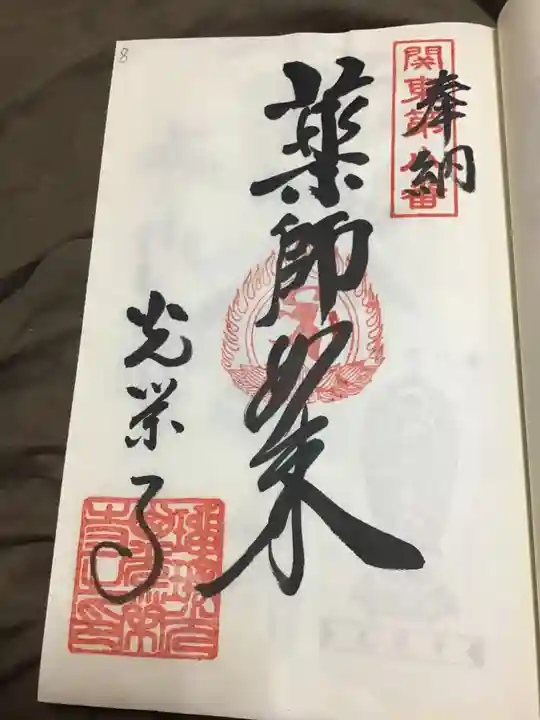 関東第八番
奉納
薬師如来
光栄寺
8